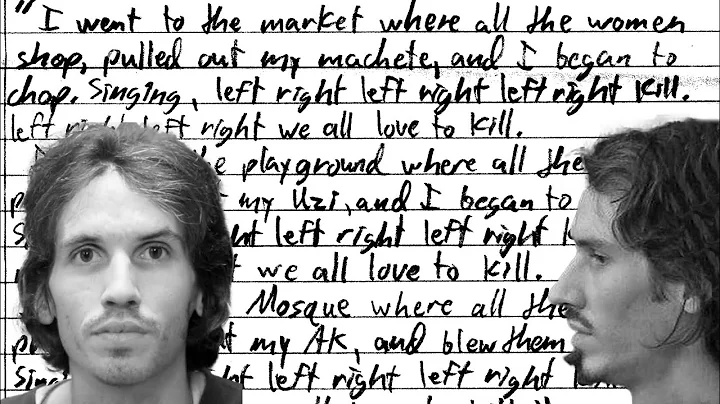 "I went to the market where all the women
shop, pulled out my machete, and I began to
chop. Singing, left right left right left right kill.
left right left right we all love to kill.
the playground where all the
my Uzi, and I began to
left right left right
we all love to kill.
Mosque where all the
my AK, and blew them
left right left right